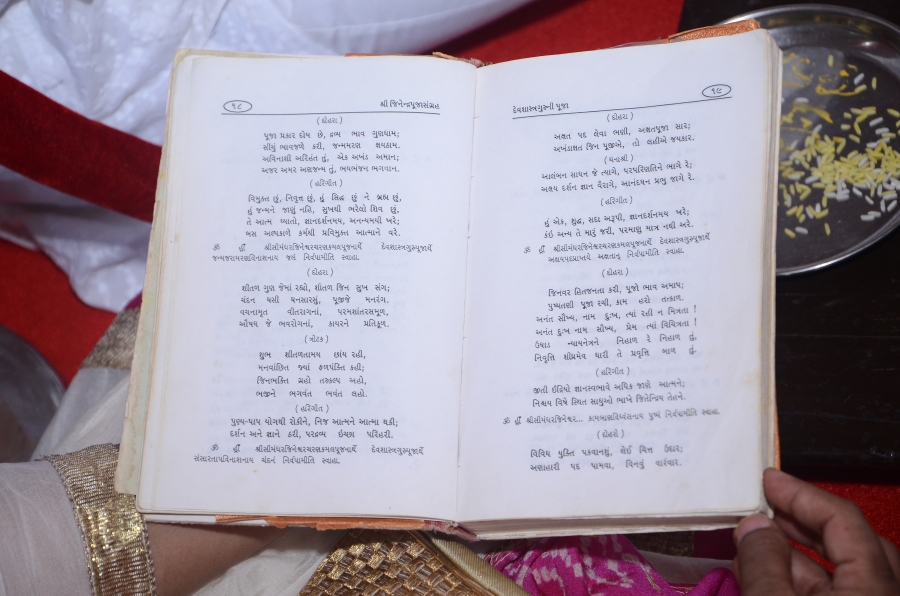 ૧૮
શ્રી જિનેન્દ્રપૂજાસંગ્રહ
(દોહરા)
પૂજા પ્રકાર દોય છે, દ્રવ્ય ભાવ ગુણધામ;
સીંચું ભાવજળે કરી, જન્મમરણ ક્ષયકામ.
અવિનાશી અરિહંત તું, એક અખંડ અમાન;
અજર અમર અણજન્મ તું, ભયભંજન ભગવાન.
(હરિગીત)
વિમુક્ત છું, નિવૃત્ત છું, હું સિદ્ધ છું ને બ્રહ્મ છું,
હું જન્મને જાણું નહિ, સુખથી ભરેલો શિવ છું,
તે આત્મ ધ્યાતો, જ્ઞાનદર્શનમય, અનન્યમયી ખરે;
બસ અલ્પકાળે કર્મથી પ્રવિમુક્ત આત્માને વરે.
ૐ હ્રીં શ્રીસીમંધરજિનેશ્વરચરણકમલપૂજનાર્થે દેવશાસ્ત્રગુરુપૂજાર્થે
જન્મજરામરણવિનાશનાય જલં નિર્વપામીતિ સ્વાહા.
(દોહરા)
શીતળ ગુણ જેમાં રહ્યો, શીતળ જિન સુખ સંગ;
ચંદન ઘસી ઘનસારસું, પૂજીજે મનરંગ.
વચનામૃત વીતરાગનાં, પરમશાંતરસમૂળ,
ઔષધ જે ભવરોગનાં, કાયરને પ્રતિકૂળ.
(ત્રોટક)
શુભ શીતળતામય છાંય રહી,
મનવાંછિત જ્યાં ફળપંક્તિ કહી;
જિનભક્તિ ગ્રહો તરુકલ્પ અહો,
ભજીને ભગવંત ભવંત લહો.
(હરિગીત)
પુણ્ય-પાપ યોગથી રોકીને, નિજ આત્મને આત્મા થકી;
દર્શન અને જ્ઞાને ઠરી, પરદ્રવ્ય ઇચ્છા પરિહરી.
ૐ હ્રીં શ્રીસીમંધરજિનેશ્વરચરણકમલપૂજનાર્થે દેવશાસ્ત્રગુરુપૂજાર્થે
સંસારતાપવિનાશનાય ચંદનં નિર્વપામીતિ સ્વાહા.
દેવશાસ્ત્રગુરુની પૂજા
૧૯
(દોહરા)
અક્ષત પદ લેવા ભણી, અક્ષતપૂજા સાર;
અખંડાક્ષત જિન પૂજીએ, તો લહીએ જયકાર.
(ધનાશ્રી)
આલંબન સાધન જે ત્યાગે, પરપરિણતિને ભાગે રે;
અક્ષય દર્શન જ્ઞાન વૈરાગે, આનંદઘન પ્રભુ જાગે રે.
(હરિગીત)
હું એક, શુદ્ધ, સદા અરૂપી, જ્ઞાનદર્શનમય ખરે;
કંઈ અન્ય તે મારું જરી, પરમાણુ માત્ર નથી અરે.
ૐ હ્રીં શ્રીસીમંધરજિનેશ્વરચરણકમલપૂજનાર્થે દેવશાસ્ત્રગુરુપૂજાર્થે
અક્ષયપદપ્રાપ્તયે અક્ષતાન્ નિર્વપામીતિ સ્વાહા.
(દોહરા)
જિનવર હિતજનતા કરી, પૂજો ભાવ અમાપ;
પુષ્પતણી પૂજા રચી, કામ હરો તત્કાળ.
અનંત સૌખ્ય, નામ દુઃખ, ત્યાં રહી ન મિત્રતા!
અનંત દુઃખ નામ સૌખ્ય, પ્રેમ ત્યાં વિચિત્રતા!
ઉઘાડ ન્યાયનેત્રને નિહાળ રે નિહાળ તું,
નિવૃત્તિ શીઘ્રમેવ ધારી તે પ્રવૃત્તિ બાળ તું.
(હરિગીત)
જીતી ઇંદ્રિયો જ્ઞાનસ્વભાવે અધિક જાણે આત્મને;
નિશ્ચય વિષે સ્થિત સાધુઓ ભાખે જિતેન્દ્રિય તેહને.
ૐ હ્રીં શ્રીસીમંધરજિનેશ્વર... કામબાણવિધ્વંસનાય પુષ્પં નિર્વપામીતિ સ્વાહા.
(દોહરો)
વિવિધ યુક્તિ પકવાનશું, લેઈ ચિત્ત ઉદાર;
અણાહારી પદ પામવા, વિનવું વારંવાર.